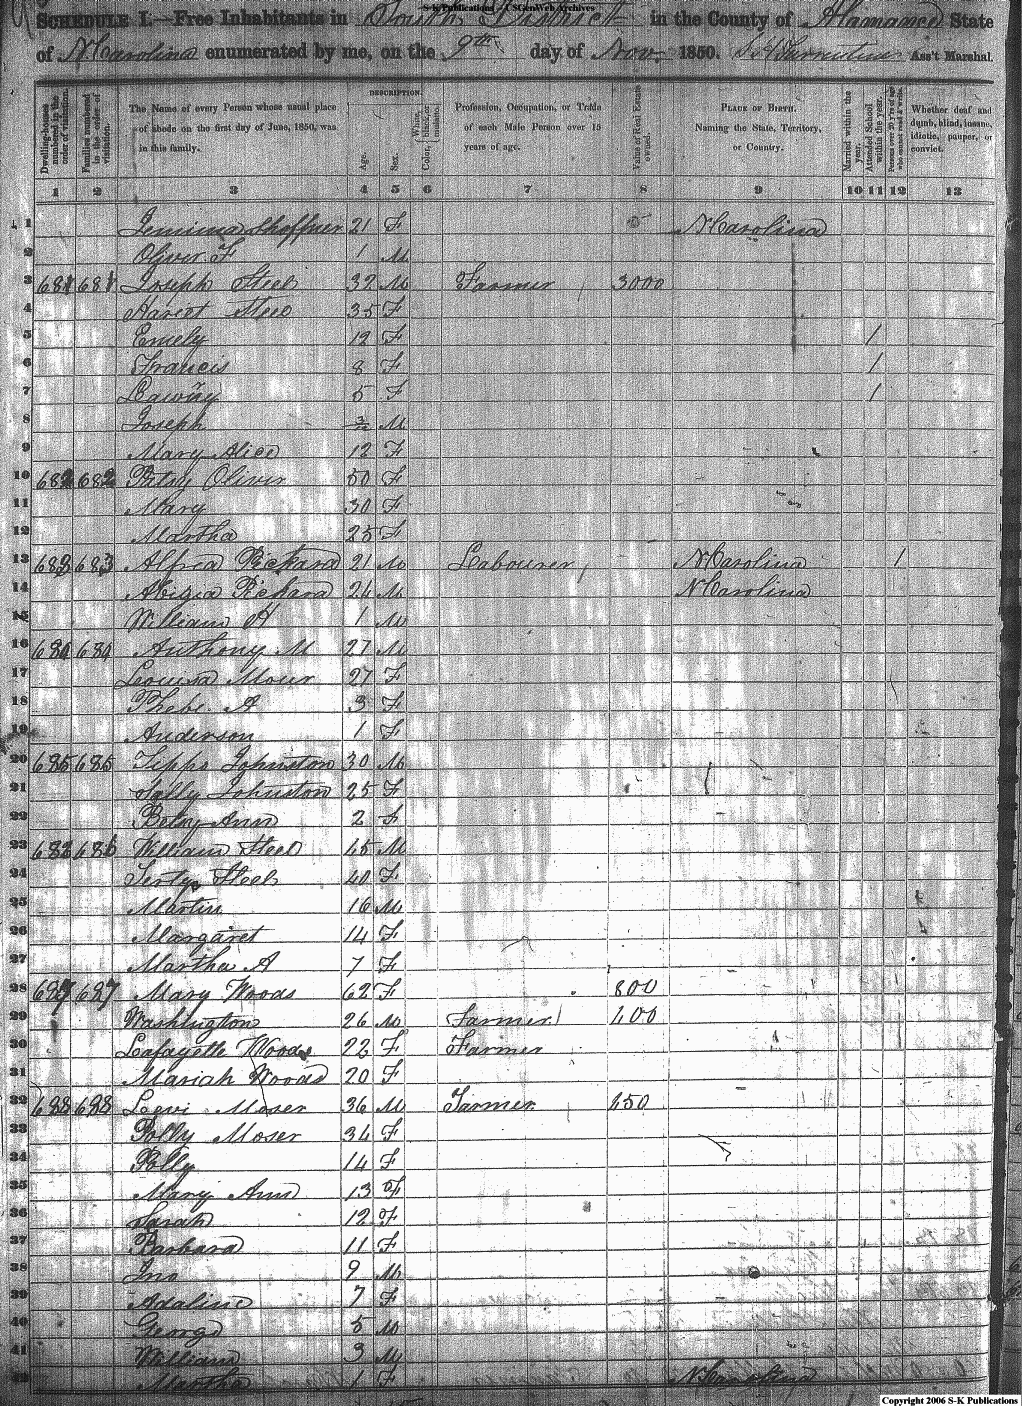 S-K Publications - USGenWeb Archives
SCHEDULE I.—Free Inhabitants in South District in the County of Alamance State
of N. Carolina enumerated by me, on the 9th day of Nov. 1850. Ass't Marshal.
Dwelling-houses numbered in the order of visitation.
Families numbered in the order of visitation.
The Name of every Person whose usual place of abode on the first day of June, 1850, was in this family.
DESCRIPTION.
Age.
Sex.
Color, White, black, or mulatto.
Profession, Occupation, or Trade of each Male Person over 15 years of age.
Value of Real Estate owned.
PLACE OF BIRTH. Naming the State, Territory, or Country.
Married within the year.
Attended School within the year.
Persons over 20 y'rs of age who cannot read & write.
Whether deaf and dumb, blind, insane, idiotic, pauper, or convict.
1 2 3 4 5 6 7 8 9 10 11 12 13
1 Jemima Shoffner 21 F N Carolina
2 Oliver F 1 M
3 681 681 Joseph Steel 32 M Farmer 3000
4 Hareot Steel 35 F
5 Emely 12 F /
6 Francis 8 F /
7 5 F /
8 Joseph M
9 Mary Alice 12 F
10 682 682 Betsy Oliver 50 F
11 Mary 30 F
12 Martha 25 F
13 683 683 Alfred Pickard 21 M Labourer N Carolina /
14 Pickard 24 M N Carolina
15 William H 1 M
16 684 684 Anthony M 27 M
17 Louisa Moser 27 F
18 Phebe A 3 F
19 Anderson 1 F
20 685 685 Johnston 30 M
21 Sally Johnston 25 F
22 Betsy Ann 2 F
23 686 686 William Steel 45 M
24 Steel 40 F
25 Martin 16 M
26 Margaret 14 F
27 Martha A 7 F
28 687 687 Mary Woods 62 F 800
29 Washington 26 M Farmer 400
30 Lafayette Woods 22 F Farmer
31 Mariah Woods 20 F
32 688 688 Levi Moser 36 M Farmer 450
33 Polly Moser 34 F
34 Polly 14 F
35 Mary Ann 13 F
36 Sarah 12 F
37 Barbara 11 F
38 Jno 9 M
39 Adaline 7 F
40 George 5 M
41 William 3 M
42 Martha 1 F N Carolina
Copyright 2006 S-K Publications